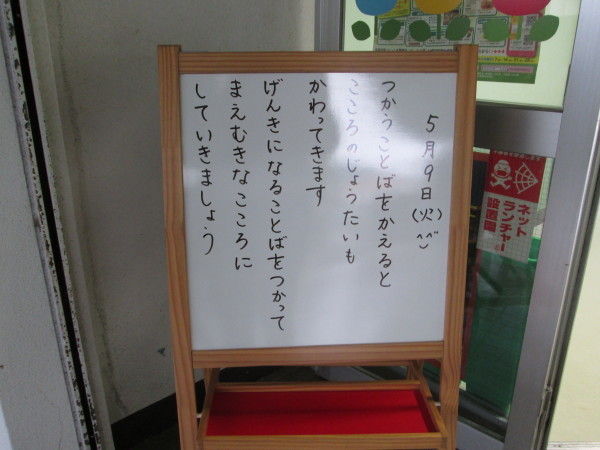 5月9日(火)^^
つかうことばをかえると
こころのじょうたいも
かわってきます
げんきになることばをつかって
まえむきなこころに
していきましょう
ネット
ランチャー
設置園